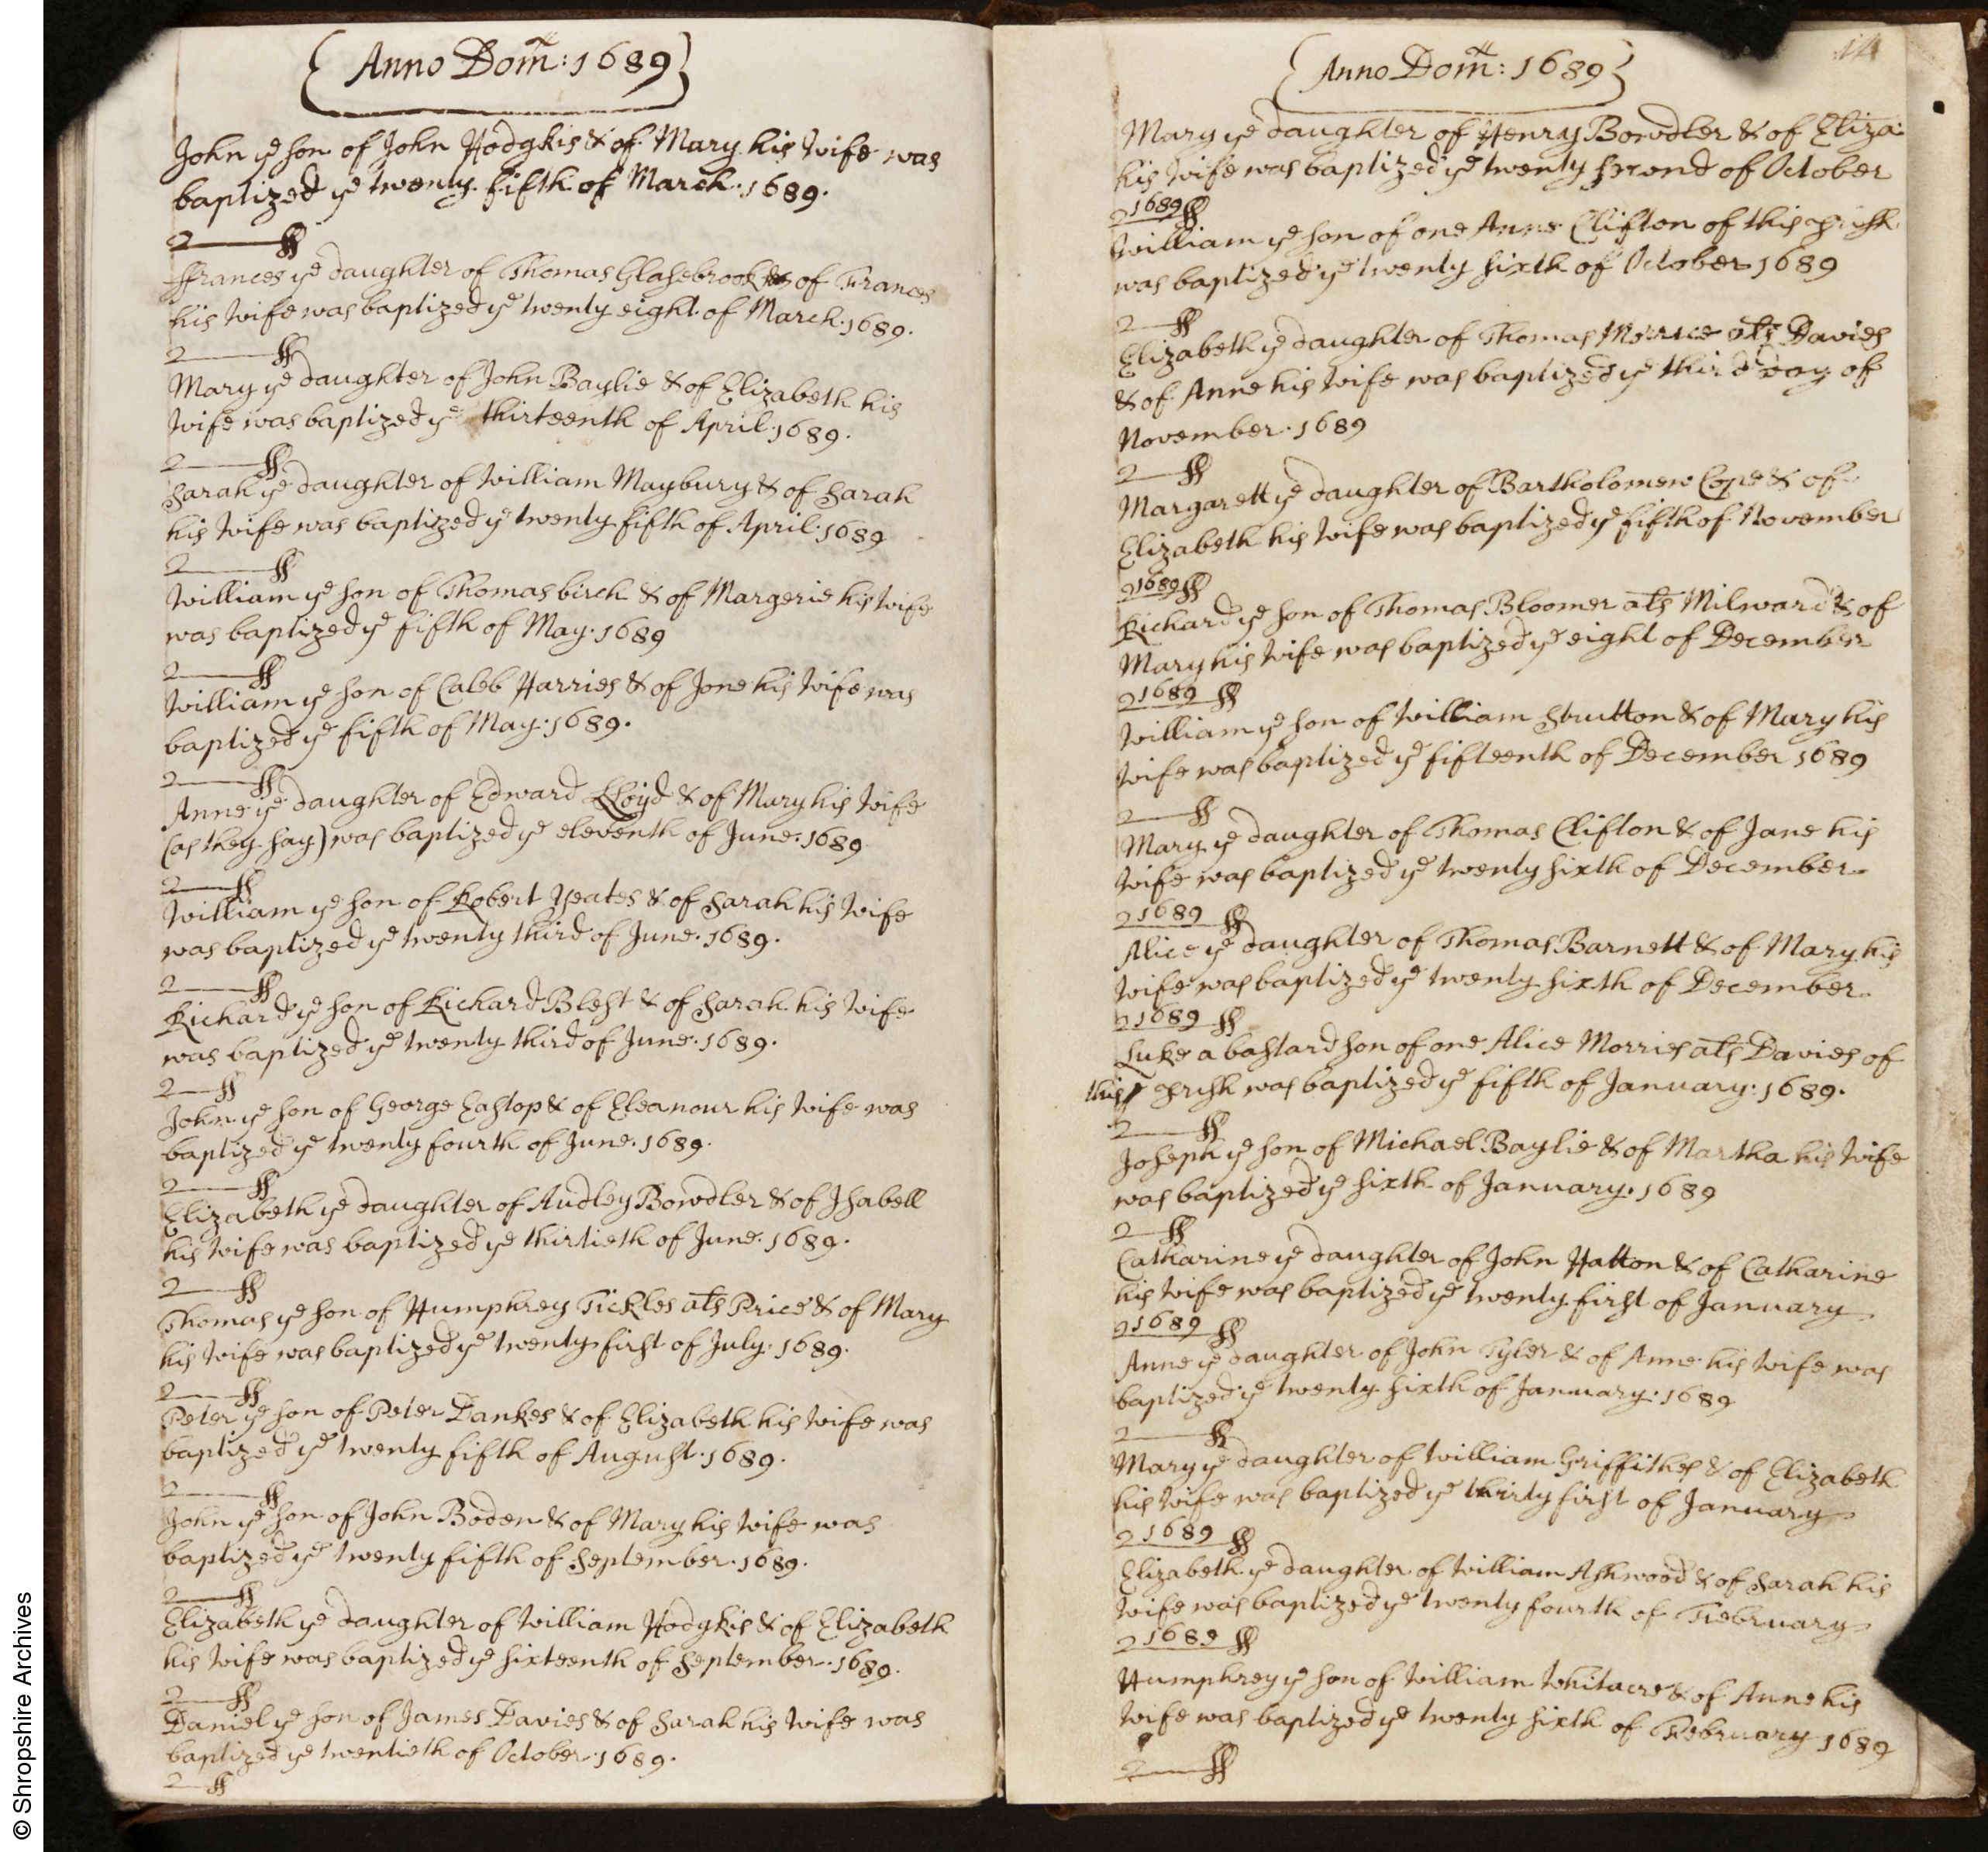 Anno Dom: 1689
John ye son of John Hodgkis & of Mary his wife was
baptized ye twenty fifth of March. 1689.
ffrances ye daughter of Thomas Glasebrook & of Frances
his wife was baptized ye twenty eight of March. 1689.
Mary ye daughter of John Baylie & of Elizabeth his
wife was baptized ye thirteenth of April. 1689.
Sarah ye daughter of William Maybury & of Sarah
his wife was baptized ye twenty fifth of April. 1689
William ye son of Thomas birch & of Margerie his wife
was baptized ye fifth of May. 1689
William ye son of Caleb Harries & of Jone his wife was
baptized ye fifth of May: 1689.
Anne ye daughter of Edward Lloyd & of Mary his wife
(as they say) was baptized ye eleventh of June: 1689
William ye son of Robert Yeates & of Sarah his wife
was baptized ye twenty third of June. 1689.
Richard ye son of Richard Blest & of Sarah his wife
was baptized ye twenty third of June. 1689.
John ye son of George Eastop & of Eleanour his wife was
baptized ye twenty fourth of June. 1689.
Elizabeth ye daughter of Audley Bowdler & of Isabell
his wife was baptized ye thirtieth of June. 1689.
Thomas ye son of Humphrey Tickles als Price & of Mary
his wife was baptized ye twenty first of July. 1689.
Peter ye son of Peter Dankes & of Elizabeth his wife was
baptized ye twenty fifth of August. 1689.
John ye son of John Boden & of Mary his wife was
baptized ye twenty fifth of September. 1689.
Elizabeth ye daughter of William Hodgkis & of Elizabeth
his wife was baptized ye sixteenth of September. 1689.
Daniel ye son of James Davies & of Sarah his wife was
baptized ye twentieth of October. 1689.
14
Anno Dom: 1689
Mary ye daughter of Henry Bowdler & of Eliza:
his wife was baptized ye twenty second of October
1689
William ye son of one Anne Clifton of this prish
was baptized ye twenty sixth of October 1689
Elizabeth ye daughter of Thomas Morrice als Davies
& of Anne his wife was baptized ye third day of
November. 1689
Margarett ye daughter of Bartholomew Cope & of
Elizabeth his wife was baptized ye fifth of November
1689
Richard ye son of Thomas Bloomer als Milward & of
Mary his wife was baptized ye eight of December
1689
William ye son of William Strutton & of Mary his
wife was baptized ye fifteenth of December 1689
Mary ye daughter of Thomas Clifton & of Jane his
wife was baptized ye twenty sixth of December
1689
Alice ye daughter of Thomas Barnett & of Mary his
wife was baptized ye twenty sixth of December
1689
Luke a bastard son of one Alice Morries als Davies of
this prish was baptized ye fifth of January: 1689.
Joseph ye son of Michael Baylie & of Martha his wife
was baptized ye sixth of January. 1689
Catharine ye daughter of John Hatton & of Catharine
his wife was baptized ye twenty first of January
1689
Anne ye daughter of John Tyler & of Anne his wife was
baptized ye twenty sixth of January: 1689
Mary ye daughter of William Griffithes & of Elizabeth
his wife was baptized ye thirty first of January
1689
Elizabeth ye daughter of William Ashwood & of Sarah his
wife was baptized ye twenty fourth of February
1689
Humphrey ye son of William Whitacre & of Anne his
wife was baptized ye twenty sixth of February 1689
© Shropshire Archives